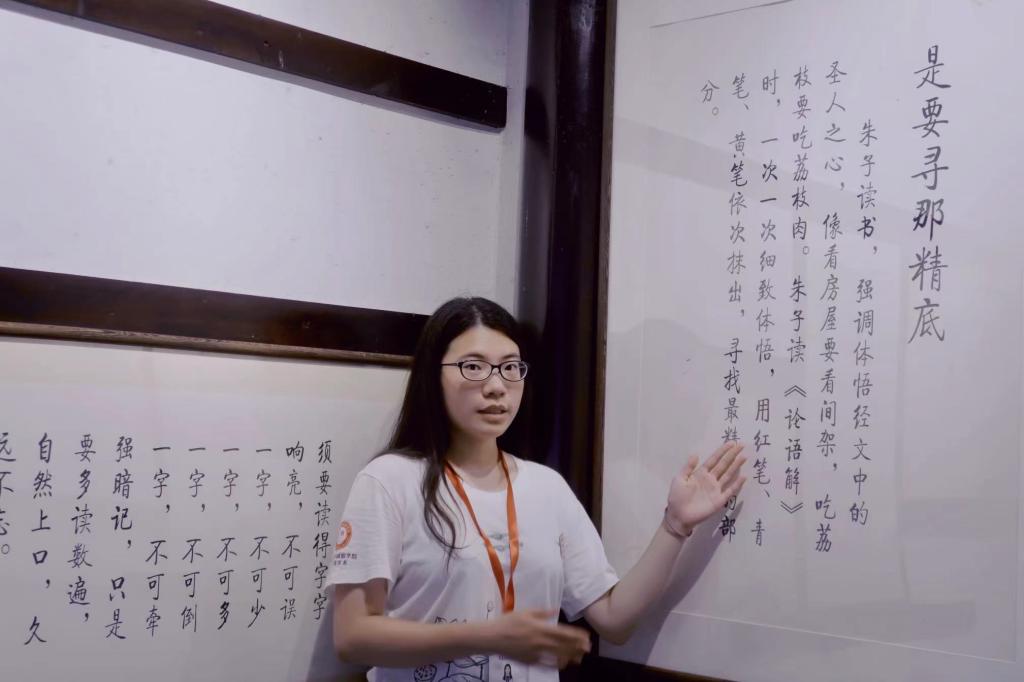 是要寻那精底
朱子读书，强调体悟经文中的
圣人之心，像看房屋要看间架，吃荔
枝要吃荔枝肉。朱子读《论语解》
时，一次一次细致体悟，用红笔、青
笔、黄笔依次抹出，寻找最精的部
分。
须要读得字字
响亮，不可误
一字，不可少
一字，不可多
一字，不可倒
一字，不可牵
强暗记，只是
要多读数遍，
自然上口，久
远不忘。